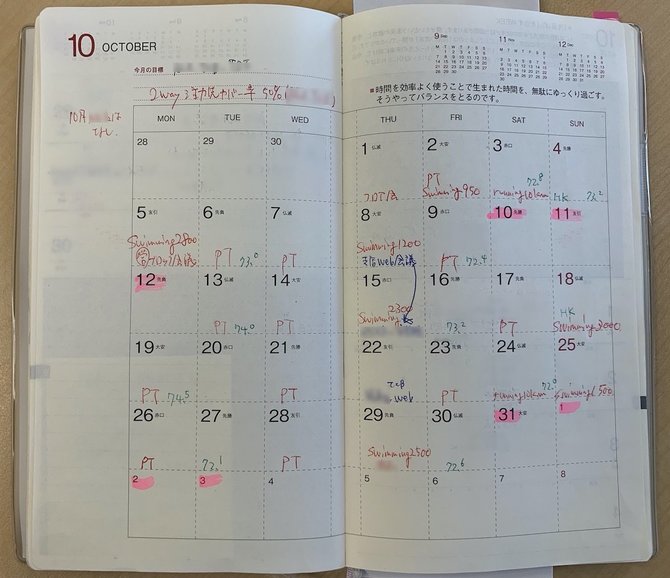 10 OCTOBER
今月の目標
2way
50%
10月
なし.
9
11
12
■時間を効率よく使うことで生まれた時間を、無駄にゆっくり過ごす。
そうやってバランスをとるのです。
MON TUE WED THU FRI SAT SUN
28 29 30 1 仏滅 2 大安 3 赤口 4 先勝
PT 72.8
Swimming950 running10km HK 73.2
5 友引 6 先負 7 仏滅 8 大安 9 赤口 10 先勝 11 友引
Swimming2800 Swimming1200
会議 PT 73.0 PT 支店web会議 PT 72.4
12 先負 13 仏滅 14 大安 15 赤口 16 先勝 17 先負 18 仏滅
2300 HK
PT 74.0 PT Swimming 73.2 PT Swimming3000
19 大安 20 赤口 21 先勝 22 友引 23 先負 24 仏滅 25 大安
72.0
PT 74.5 PT web PT running10km Swimming1500
26 赤口 27 先勝 28 友引 29 先負 30 仏滅 31 大安 1
Swimming2500
PT 73.1 PT 72.6
2 3 4 5 6 7 8